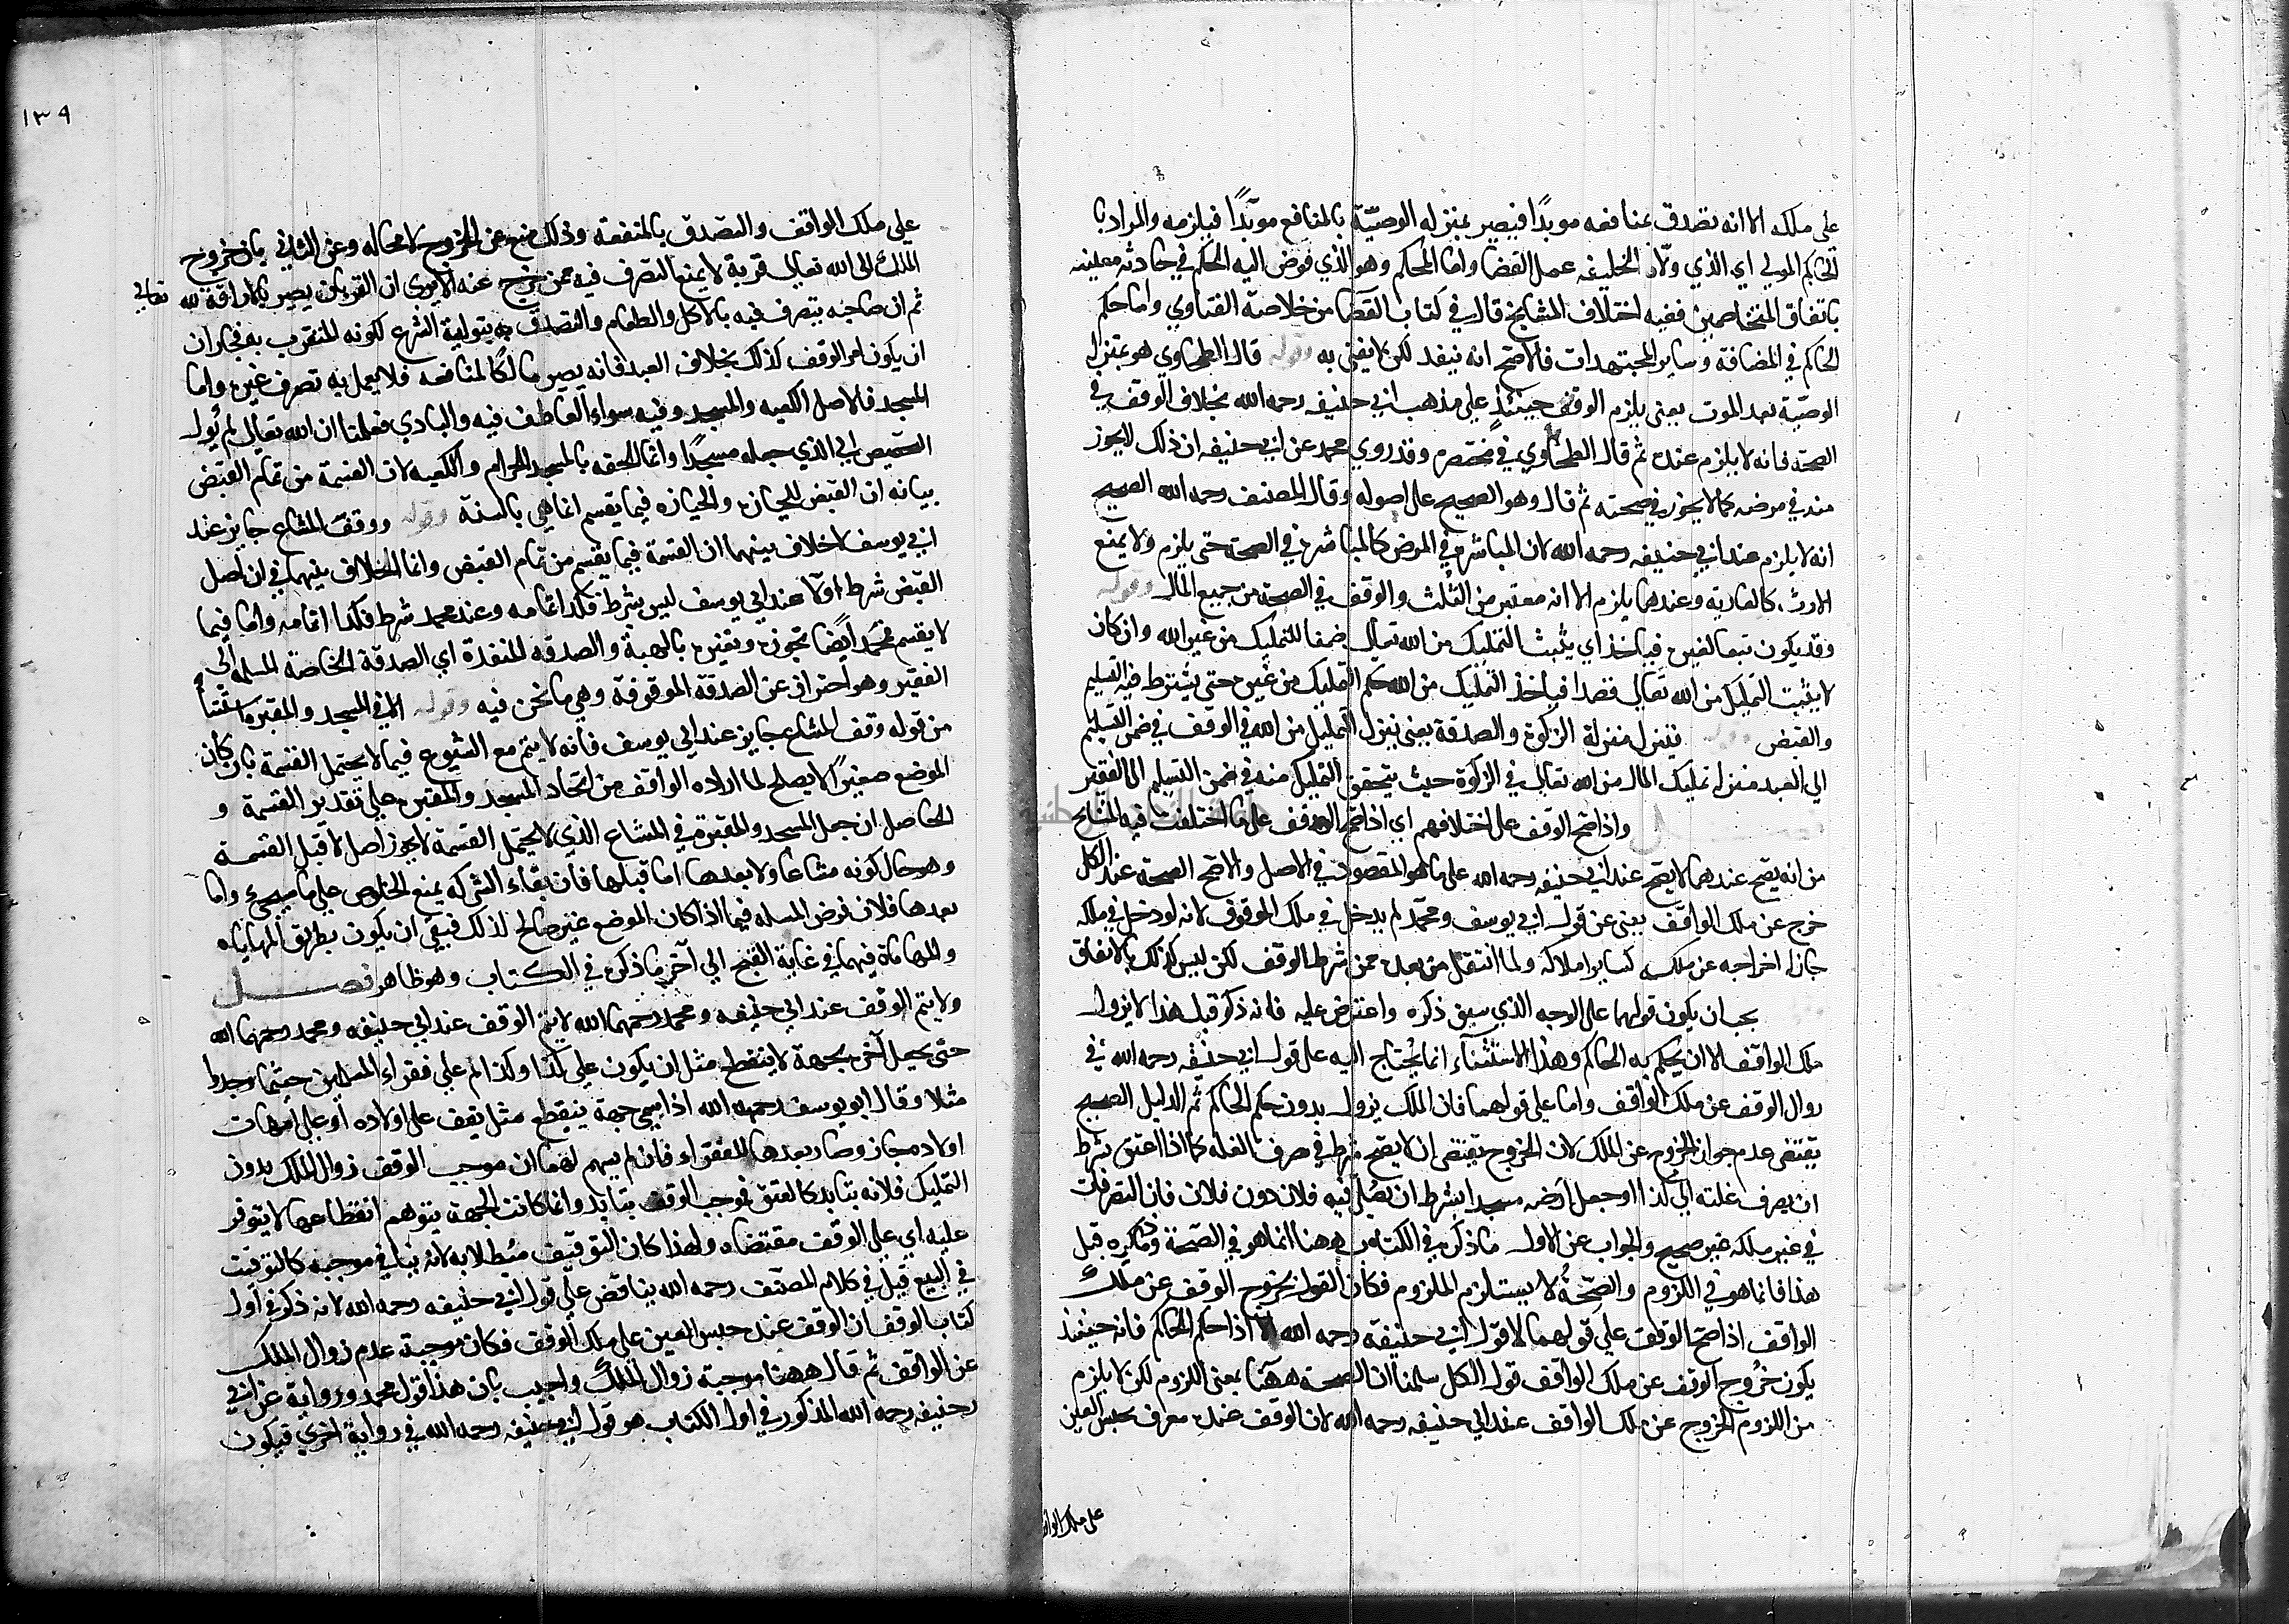 على ملكه الا انه تصدق بمنافعه موبدًا فيصير بمنزله الوصيّة بالمنافع موبّدًا فيلزمه والمراد با
لحاكم المولي اي الذي ولّاه الخليفه عمل القضا واما المحكم وهو الذي فوض اليه الحكم في حادثه معينه
باتفاق المتخاصمين ففيه اختلاف المشايخ قال في كتاب القضا من خلاصة الفتاوي واما حكم
الحاكم في المضافة وساير المجتهدات فالاصح انه ينفد لكن لا يفتي به وقوله قال الطحاوي هو بمنزله
الوصيّة بعد الموت يعني يلزم الوقف حينئذٍ علي مذهب ابي حنيفه رحمه الله بخلاف الوقف في
الصحة فانه لا يلزم عنده ثم قال الطحاوي في مختصره وقد روي محمد عن ابي حنيفه ان ذلك لا يجوز
منه في مرضه كما لا يجوز في صحته ثم قال وهو الصحيح على اصوله وقال المصنف رحمه الله الصحيح
انه لا يلزم عند ابي حنيفه رحمه الله لان المباشره في المرض كالمباشره في الصحة حتى يلزم ولا يمنع
الارث كالعاريه وعندهما يلزم الا انه معتبر من الثلث والوقف في الصحة من جميع المال وقوله
وقد يكون تبعا لغيره فياخذ اي يثبت التمليك من الله تعالى ضمنا للتمليك من غير الله وان كان
لا يثبت التمليك من الله تعالي قصدا فياخذ التمليك من الله حكم التمليك من غيره حتى يشترط فيه التسليم
والقبض وقوله فينزل منزلة الزكوة والصدقة يعني نيزل التمليل من الله في الوقف في ضمن التسليم
الي العبد منزله تمليك المال من الله تعالى في الزكوة حيث يتحقق التمليك منه في ضمن التسليم الى الفقير
واذا صح الوقف على اختلافهم اي اذا صح الوقف على ما اختلفت فيه المشايخ
من انه يصح عندهما لا يصح عند ابي حنيفه رحمه الله على ما هو المقصود في الاصل والاصح الصحة عند الكل
خرج عن ملك الواقف يعني عن قول ابي يوسف ومحمّد لم يدخل في ملك الموقوف لانه لو دخل في ملكه
جاز له اخراجه عن ملكه كساير املاكه ولما انتقل من بعده عن شرط الوقف لكن ليس كذلك بالاتفاق
يجب ان يكون قولهما على الوجه الذي سبق ذكره واعترض عليه فانه ذكر قبل هذا لا يزول
ملك الواقف الا ان يحكم به الحاكم وهذا الاستثناء انما يحتاج اليه على قول ابي حنيفه رحمه الله في
زوال الوقف عن ملك الواقف واما على قولهما فان الملك يزول بدون حكم الحاكم ثم الدليل الصحيح
يقتضي عدم جواز الخروج عن الملك لان الخروج يقتضى ان لا يصح شرط في صرف الغله كما اذا اعتق بشرط
ان يصرف غلته الي كذا او جعل ارضه مسجدا بشرط ان يصُلّي فيه فلان دون فلان فان التصرفات
في غير ملكه غير صحيح والجواب عن الاول ما ذكره في الكتاب ههنا انما هو في الصّحة وما ذكره قبل
هذا فانما هو في اللزوم والصّحّةُ لا يستلزم الملزوم فكان القول بخروج الوقف عن ملك
الواقف اذا صح الوقف علي قولهما لا قول ابي حنيفة رحمه الله الا اذا حكم الحاكم فانه حينئذ
يكون خُروج الوقف عن ملك الواقف قول الكل سلمنا ان الصحة ههنا بمعنى اللزوم لكن لا يلزم
من اللزوم الخروج عن ملك الواقف عند ابي حنيفه رحمه الله لان الوقف عنده معرف بحبس العين
على ملك الواقف
١٣٩
علي ملك الواقف والتصدق بالمنفعة وذلك منع عن الخروج لا محاله وعن الثاني بان خروج
الملك الى الله تعالى قربة لا يمنع التصرف فيه عمن خرج عنه الا يري ان القربان يصير بالاراقة لله تعالي
ثم ان صاحبه يتصرف فيه بالاكل والطعام والتصدق به بتولية الشرع لكونه للتقرب به فجاز ان
ان يكون امر الوقف كذلك بخلاف العبد فانه يصير مالكًا لمنافعه فلا يعمل به تصرف غيره واما
المسجد فالاصل الكعبه والمسجد وفيه سواء العاطف فيه والبادي فعلمنا ان الله تعالى لم يُول
الخميس ابي الذي جعله مسجدًا وانما الحقه بالمسجد الحرام والكعبه لان القسمة من تمام القبض
بيانه ان القبض للحيازه والحيازه فيما يقسم انما هي بالسنة وقوله ووقف المشاع جايز عند
ابي يوسف لا خلاف بينهما ان القسمة فيما يقسم من تمام القبض وانما الخلاف بينهما في ان اصل
القبض شرط اولًا عند ابي يوسف ليس بشرط فكذا تمامه وعند محمد شرط فكذا اتمامه واما فيما
لا يقسم فمحمد ايضًا تجوزه ويعتبره بالهبة والصدقه المنفدة اي الصدقة الخاصة المسلمه الي
الفقير وهو احتراز عن الصدقة الموقوفة وهي ما نحن فيه وقوله الا في المسجد والمقبره استثنأ
من قوله وقف المشاع جايز عند ابي يوسف فانه لا يتم مع الشيوع فيما لا يحتمل القسمة بان كان
الموضع صغيرًا لا يصلح لما اراده الواقف من اتخاد المسجد والمقبره على تقدير القسمة و
الحاصل ان جعل المسجد والمقبرة في المشاع الذي لا يحتمل القسمة لا يجوز اصل لا قبل القسمة
وهو حال كونه مشاعا ولا بعدها اما قبلها فان بقاء الشركه يمنع الخلوص على ما سيجيء واما
بعدها فلان فرض المسله فيما اذا كان الموضع غير صالح لذلك فبقي ان يكون بطريق المهاياه
والمهاياة فيهما في غاية القبح الي آخر ما ذكره في الكتاب وهو ظاهر فصل
ولا يتم الوقف عند ابي حنيفه ومحمد رحمهما الله لا يتم الوقف عند ابي حنيفه ومحمد رحمهما الله
حتى يجعل آخره بجهة لا ينقطع مثل ان يكون علي كذا وكذا ثم علي فقراء المسلمين حيثما وجدوا
مثلا وقال ابو يوسف رحمه الله اذا سمي جهة ينقطع مثل يقف على اولاده او على امهات
اولاده جاز وصار بعدها للفقراء وان لم يسمهم لهما ان موجب الوقف زوال الملك بدون
التمليك فلانه يتابد كالعتق فوجب الوقف يتابد وانما كانت الجهة يتوهم انقطاعها لا يتوفر
عليه اي علي الوقف مقتضاه ولهذا كان التوقيف مُبطلا به لانه ينافي موجبه كالتوقيت
في البيع قيل في كلام المصنف رحمه الله يناقض علي قول ابي حنيفه رحمه الله لانه ذكر في اول
كتاب الوقف ان الوقف عنده حبس العين علي ملك الوقف فكان موجبه عدم زوال الملك
عن الواقف ثم قال ههنا موجبه زوال الملك واجيب بان هذا قول محمد ورواية عن ابي
حنيفه رحمه الله المذكور في اول الكتاب هو قول ابي حنيفه رحمه الله في رواية اخري فيكون